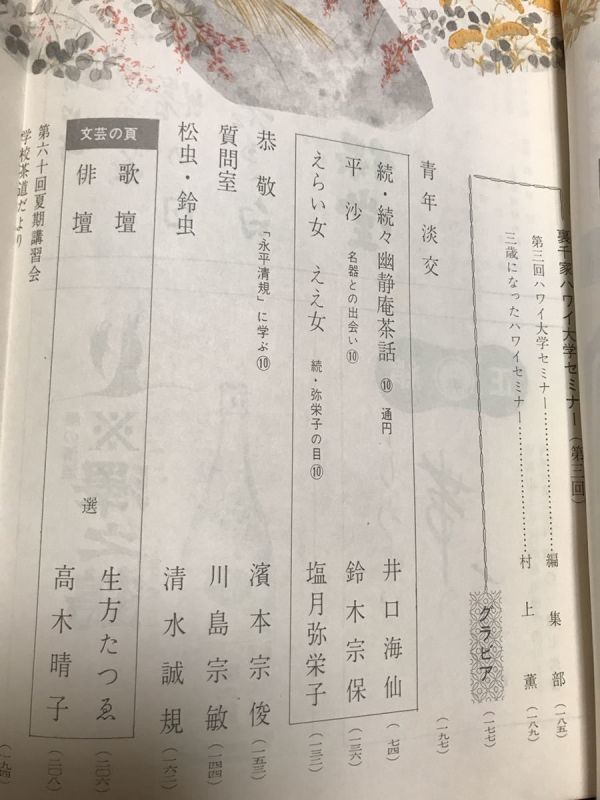 裏千家ハワイ大学セミナー(第三回)
第三回ハワイ大学セミナー……編集部(一八五)
三歳になったハワイセミナー……村上薫(一八九)
グラビア(一七七)
青年淡交(一九七)
続・続々幽静庵茶話⑩ 通円 井口海仙(七四)
平沙 名器との出会い⑩ 鈴木宗保(一三六)
えらい女 ええ女 続・弥栄子の目⑩ 塩月弥栄子(一三二)
恭敬 「永平清規」に学ぶ⑩ 濱本宗俊(一五三)
質問室 川島宗敏(一四四)
松虫・鈴虫 清水誠規(一六二)
文芸の頁
歌壇 選 生方たつゑ(二〇六)
俳壇 高木晴子(二〇八)
第六十回夏期講習会
学校茶道だより